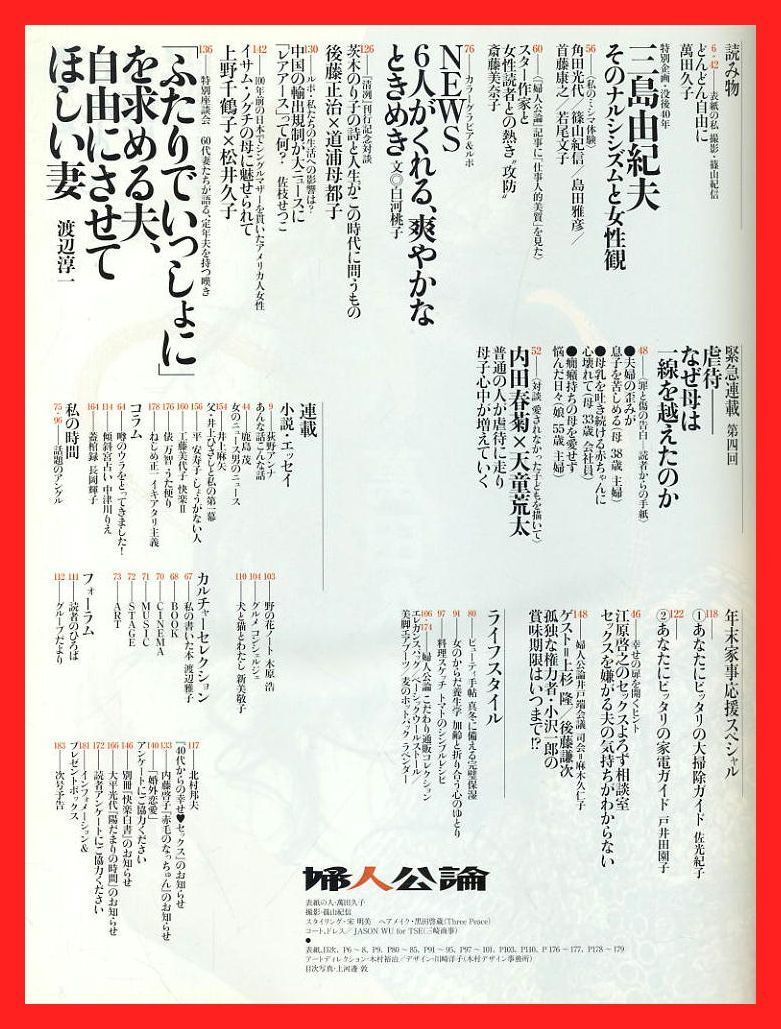 読み物
6・42 表紙の私 撮影・篠山紀信
どんどん自由に
萬田久子
特別企画・没後40年
三島由紀夫
そのナルシシズムと女性観
56 〈私のミシマ体験〉
角田光代／篠山紀信／島田雅彦／
首藤康之／若尾文子
60 〈『婦人公論』記事に「仕事人的美質」を見た〉
スター作家と
女性読者との熱き〝攻防〟
斎藤美奈子
76 カラーグラビア＆ルポ
NEWS
6人がくれる、爽やかな
ときめき 文◎白河桃子
126 『清冽』刊行記念対談
茨木のり子の詩と人生がこの時代に問うもの
後藤正治×道浦母都子
130 ルポ・私たちの生活への影響は?
中国の輸出規制が大ニュースに
「レアアース」って何? 佐枝せつこ
142 100年前の日本でシングルマザーを貫いたアメリカ人女性
イサム・ノグチの母に魅せられて
上野千鶴子×松井久子
136 特別座談会 60代妻たちが語る、定年夫を持つ嘆き
「ふたりでいっしょに」
を求める夫、
自由にさせて
ほしい妻 渡辺淳一
緊急連載 第四回
虐待――
なぜ母は
一線を越えたのか
48 〈罪と傷の告白――読者からの手紙〉
●夫婦の歪みが
息子を苦しめる(母 38歳 主婦)
●母乳を吐き続ける赤ちゃんに
心壊れて(母 33歳 会社員)
●癇癪持ちの母を愛せず
悩んだ日々(娘 55歳 主婦)
52 〈対談 愛されなかった子どもを描いて〉
内田春菊×天童荒太
普通の人が虐待に走り
母子心中が増えていく
連載
小説・エッセイ
9 荻野アンナ
あんな話こんな話
44 鹿島 茂
女のニュース男のニュース
154 井上麻矢
父・井上ひさしと私の第一幕
156 平 安寿子 しょうがない人
160 工藤美代子 快楽II
176 俵 万智 うた便り
178 ねじめ正一 イキアタリ主義
コラム
64 噂のウラをとってきました!
114 傾斜宮占い 中津川りえ
164 蓋棺録 長岡輝子
私の時間
75・96 話題のアングル
年末家事応援スペシャル
118 ①あなたにピッタリの大掃除ガイド 佐光紀子
122 ②あなたにピッタリの家電ガイド 戸井田園子
46 幸せの扉を開くヒント
江原啓之のセックスよろず相談室
セックスを嫌がる夫の気持ちがわからない
148 婦人公論井戸端会議 司会=麻木久仁子
ゲスト=上杉 隆／後藤謙次
孤独な権力者・小沢一郎の
賞味期限はいつまで!?
ライフスタイル
80 ビューティ手帖 真冬に備える完璧保湿
91 女のからだ養生学 加齢と折り合う心のゆとり
97 料理スケッチ トマトのシンプルレシピ
106・174 婦人公論 こだわり通販コレクション
エレガンスバック ベーシックウールストール
美脚エアブーツ／麦のホットパック ラベンダー
103 野の花ノート 木原 浩
104 グルメ コンシェルジェ
110 犬と猫とわたし 新美敬子
カルチャーセレクション
67 私の書いた本 渡辺雅子
68 BOOK
70 CINEMA
71 MUSIC
72 STAGE
73 ART
フォーラム
111 読者のひろば
112 グループだより
117 北村邦夫
『40代からの幸せ♥セックス』のお知らせ
133 内藤啓子『赤毛のなっちゅん』のお知らせ
140 「婚外恋愛」
アンケートにご協力ください
146 別冊『快楽白書』のお知らせ
166 大平光代『陽だまりの時間』のお知らせ
172 読者アンケートにご協力ください
181 インフォメーション＆
プレゼントボックス
183 次号予告
婦人公論
表紙の人・萬田久子
撮影・篠山紀信
スタイリング・宋 明美 ヘアメイク・黒田啓蔵(Three Peace)
コート、ドレス／JASON WU for TSE(三崎商事)
●
表紙、目次、P6～8、P9、P80～85、P91～95、P97～101、P103、P110、P176～177、P178～179
アートディレクション・木村裕治／デザイン・川崎洋子(木村デザイン事務所)
目次写真・上河邊 敦